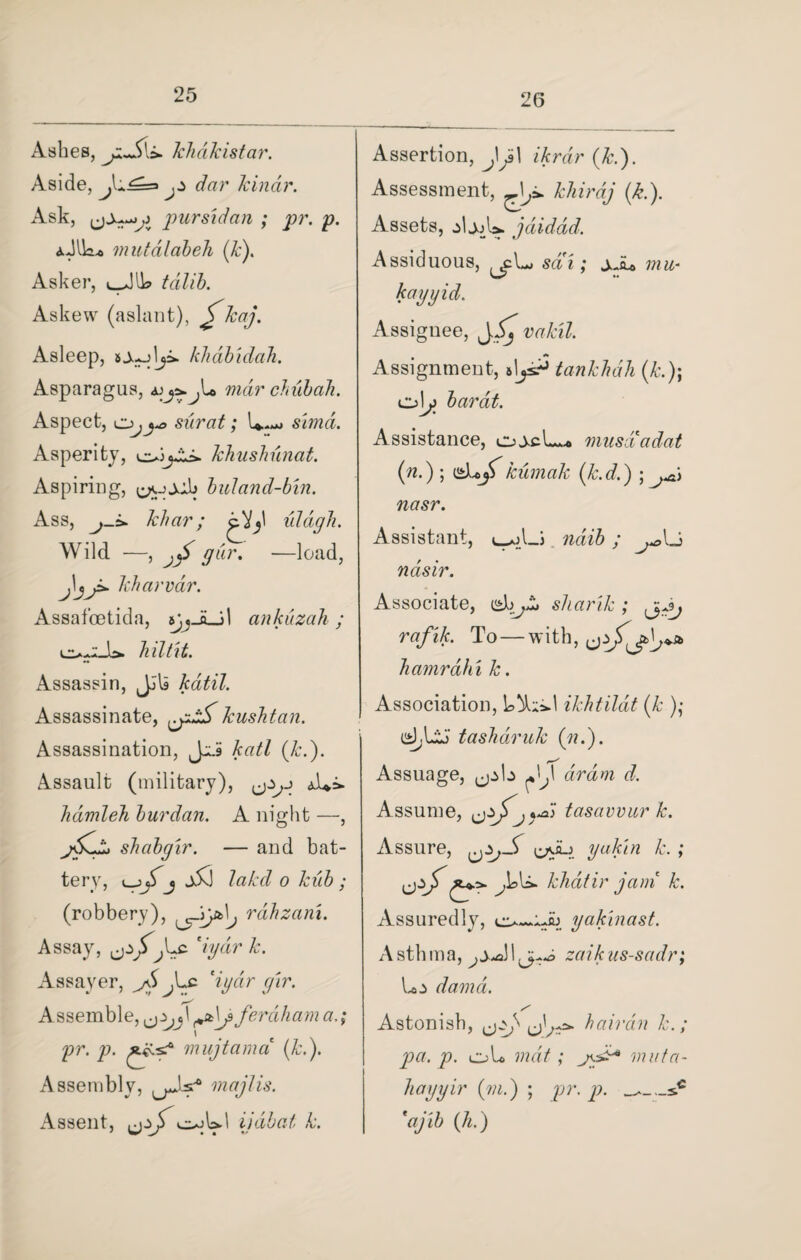 25
Ashes, خاکستر khákistar.
Aside, در کنار dar kinár.
Ask, پرسیدن pursídan ; pr. p.
مطالبه mutálabeh (k).
Asker, طالب tálib.
Askew (aslant), کج kaj.
Asleep, خوابیده khábídah.
Asparagus, مارچوبه már chúbah.
Aspect, صورت súrat ; سیما símá.
Asperity, خشونت khushúnat.
Aspiring, بلندبین buland-bín.
Ass, خر khar ; اولاغ úlágh.
Wild —, گور gúr. —load,
خروار kharvár.
Assafœtida, انکوزه ankúzah ;
حلتیت hiltít.
Assassin, قاتل kátil.
Assassinate, کشتن kushtan.
Assassination, قتل katl (k.).
Assault (military), حمله بردن
hámleh burdan. A night —,
شبگیر shabgír. — and bat-
tery, لکد و کوب lakd o kúb ;
(robbery), راهزنی ráhzaní.
Assay, عیار کردن 'iyár k.
Assayer, عیار گیر 'iyár gír.
Assemble, فراهم آوردن feráham a.;
pr. p. مجتمع mujtama' (k.).
Assembly, مجلس majlis.
Assent, اجابت کردن ijábat k.
26
Assertion, اقرار ikrár (k.).
Assessment, خراج khiráj (k.).
Assets, جایداد jáidád.
Assiduous, ساعی sá'í ; مقید mu-
kayyid.
Assignee, وکیل vakíl.
Assignment, تنخواه tankháh (k.);
برات barát.
Assistance, مساعدت musá'adat
(n.) ; کومک kúmak (k.d.) ; نصر
nasr.
Assistant, نایب náib ; ناصر
násir.
Associate, شریک sharík ; رفیق
rafík. To—with, همراهی کردن
hamráhí k.
Association, اختلاط ikhtilát (k );
تشارک tasháruk (n.).
Assuage, آرام دادن árám d.
Assume, تصور کردن tasavvur k.
Assure, یقین کردن yakín k. ;
خاطر جمع کردن khátir jam' k.
Assuredly, یقینست yakínast.
Asthma, ضیق الصدر zaikus-sadr;
دما damá.
Astonish, حیران کردن hairán k.;
pa. p. مات mát ; متحیر muta-
hayyir (m.) ; pr. p. عجیب
'ajíb (h.)